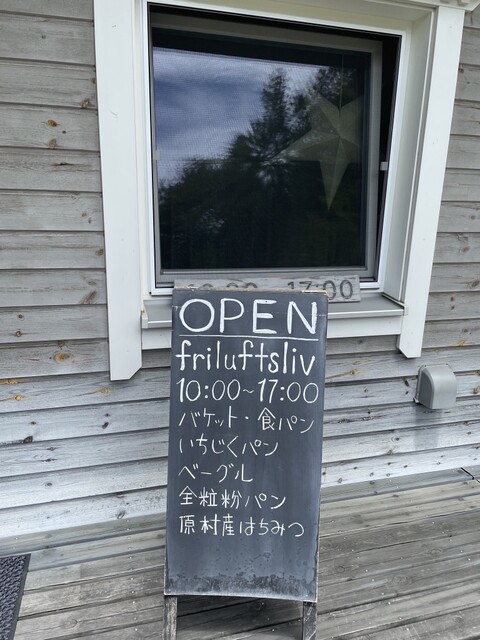 17:00
OPEN
friluftsliv
10:00~17:00
バケット・食パン
いちじくパン
ベーグル
全粒粉パン
原村産はちみつ